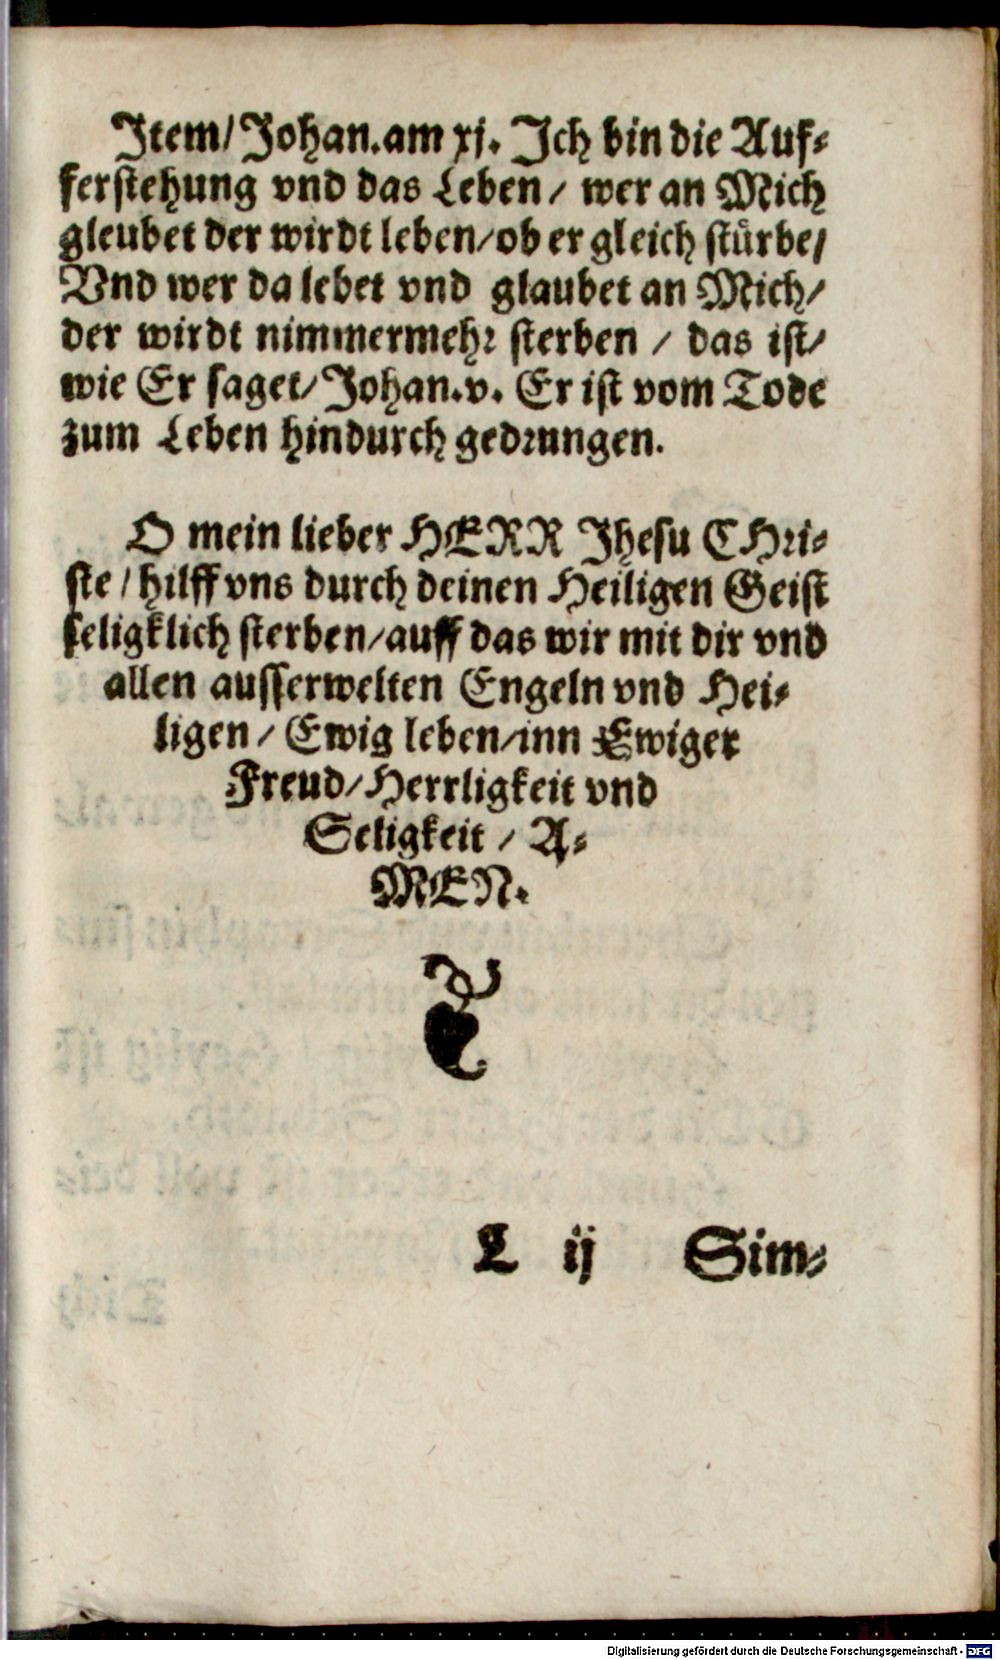 Item/ Johan. am xj. Ich bin die Auf-
ferstehung vnd das Leben/ wer an Mich
gleubet der wirdt leben/ ob er gleich stürbe/
Vnd wer da lebet vnd glaubet an Mich/
der wirdt nimmermehr sterben / das ist/
wie Er saget/ Johan. v. Er ist vom Tode
zum Leben hindurch gedrungen.
O mein lieber HERR Jhesu CHri-
ste / hilff vns durch deinen Heiligen Geist
seligklich sterben/ auff das wir mit dir vnd
allen ausserwelten Engeln vnd Hei-
ligen / Ewig leben/ inn Ewiger
Freud/ Herrligkeit vnd
Seligkeit / A-
MEN.
L ij Sim-
Digitalisierung gefördert durch die Deutsche Forschungsgemeinschaft - DFG